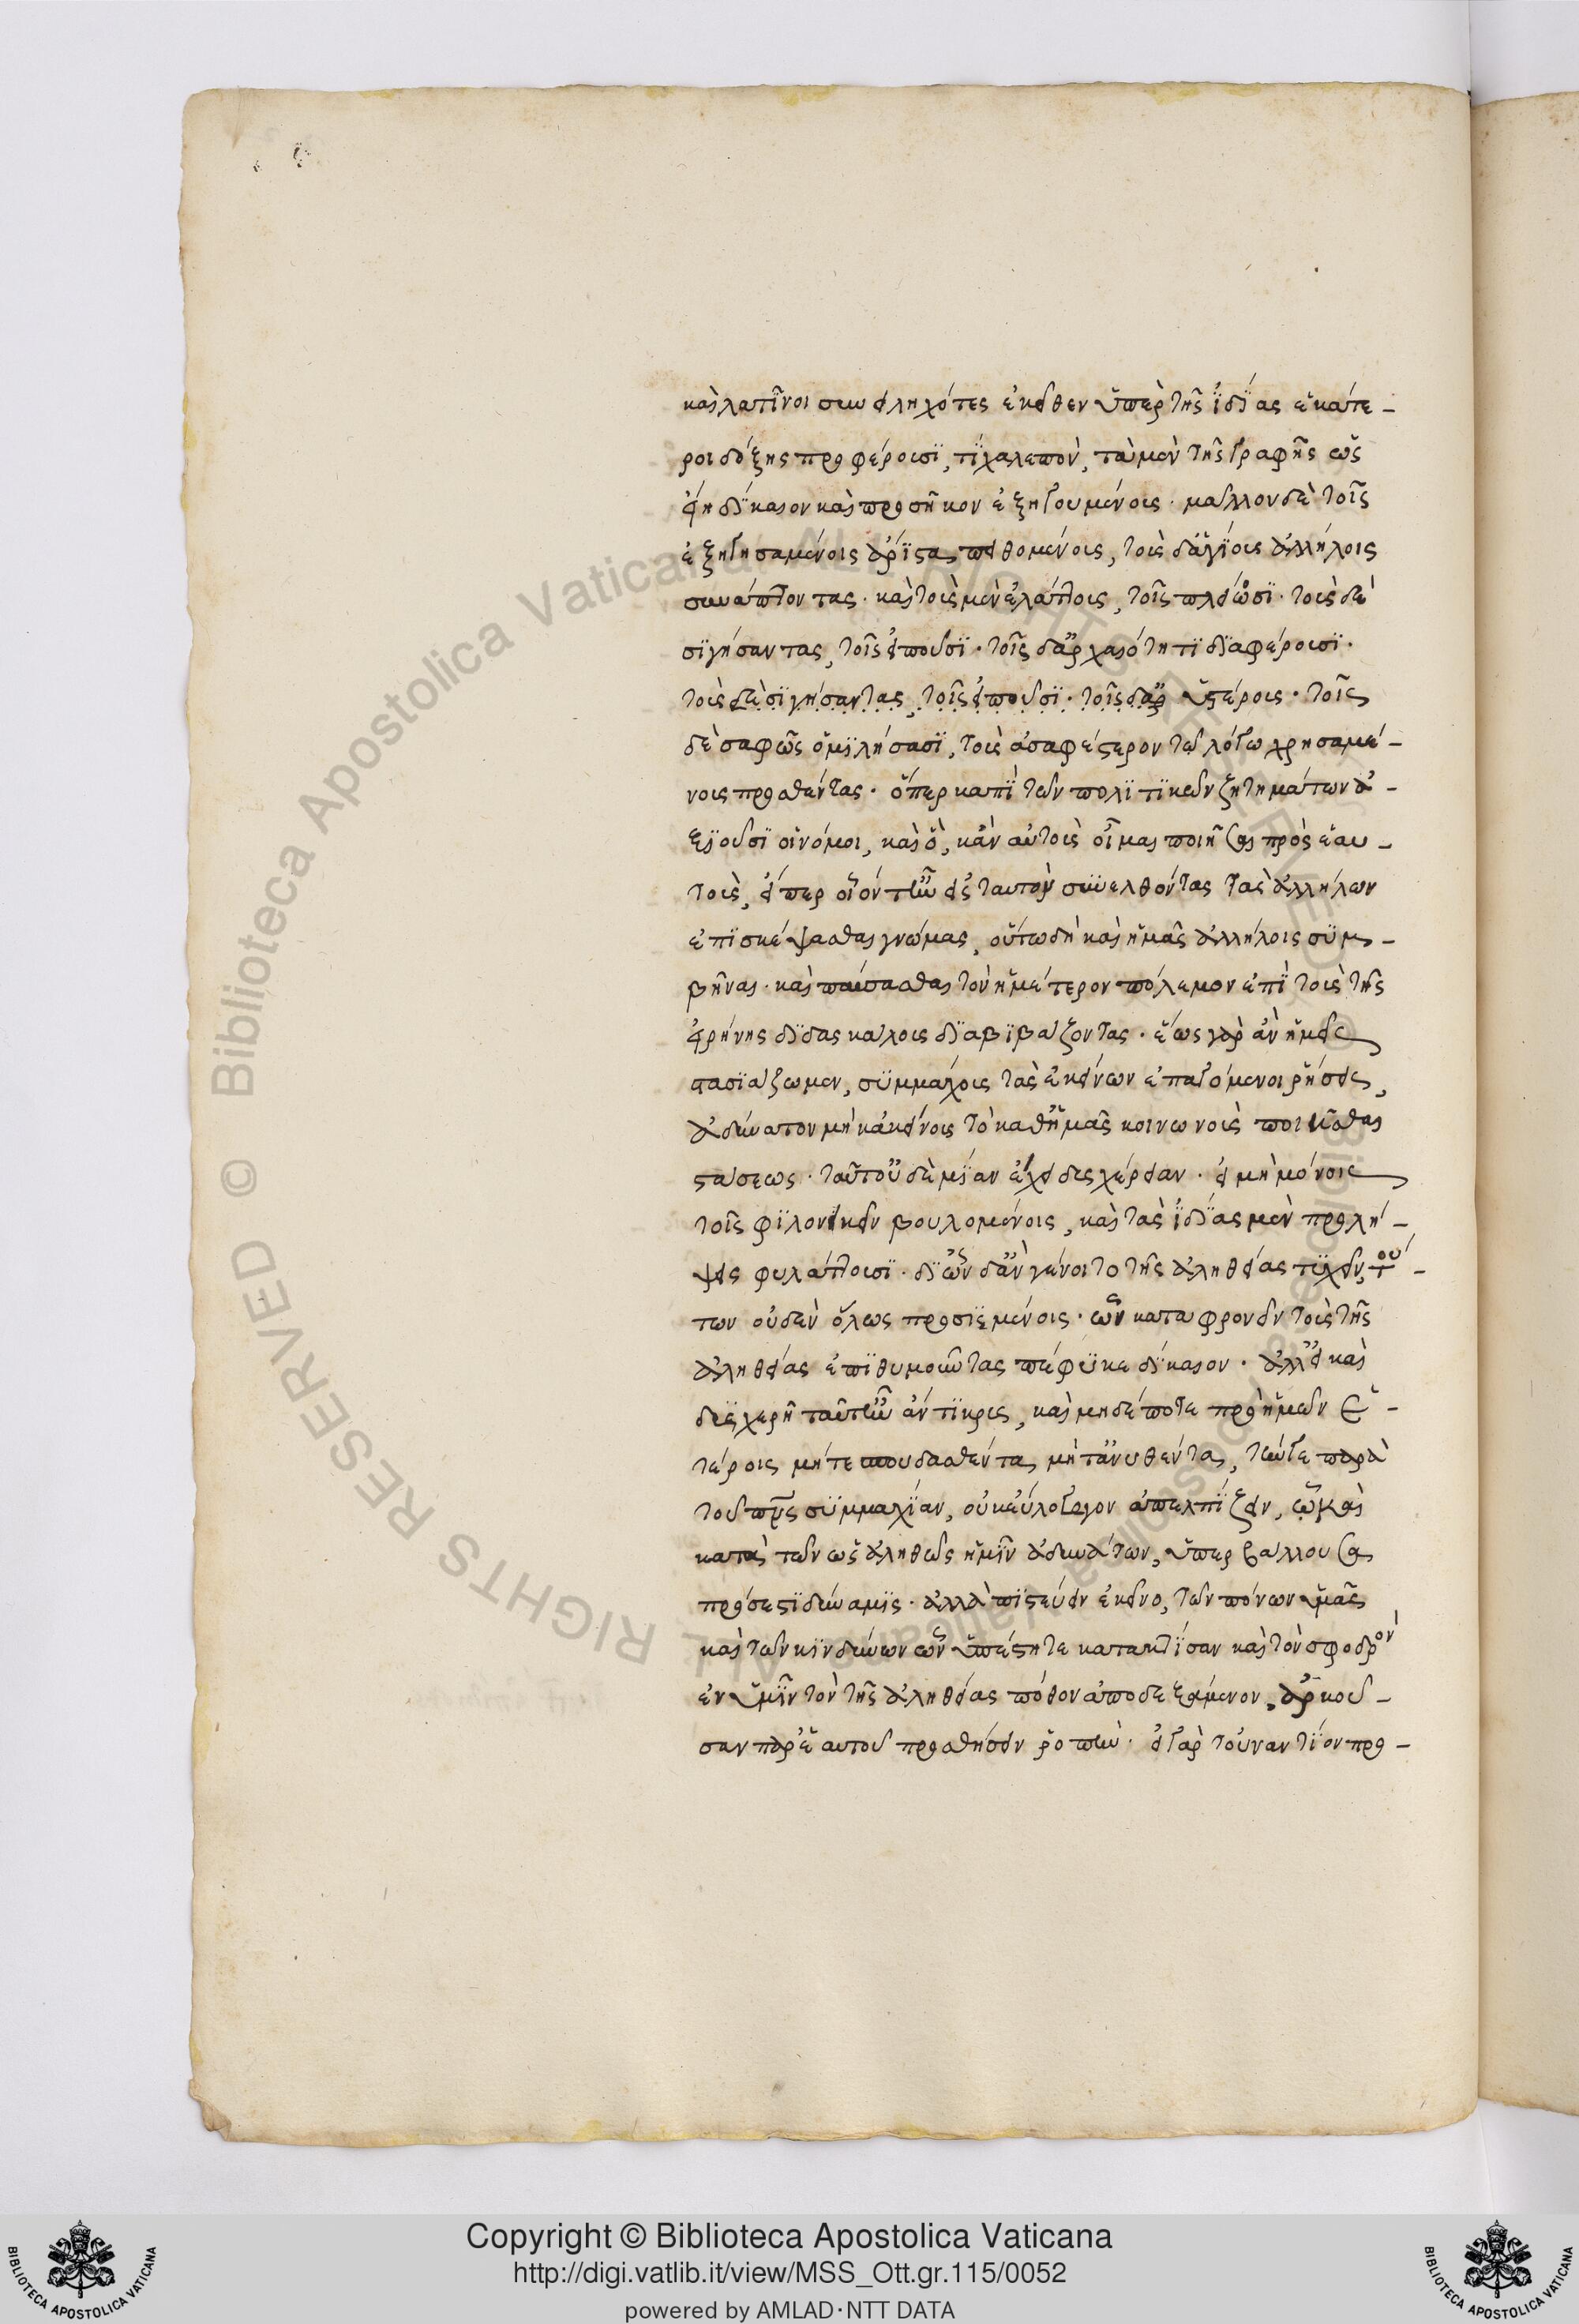 καὶ λατῖνοι συνειληχότες ἐκεῖθεν ὑπὲρ τῆς ἰδίας ἑκάτε-
ροι δόξης προφέρουσι, τί χαλεπὸν, τὰ μὲν τῆς γραφῆς ὡς
ἔφη δίκαιον καὶ προσῆκον ἐξηγουμένοις. μᾶλλον δὲ τοῖς
ἐξηγησαμένοις ἄριστα πειθομένοις, τοὺς δ' ἁγίους ἀλλήλοις
συνάπτοντας. καὶ τοὺς μὲν ἐλάττους, τοῖς πλείωσι. τοὺς δὲ
σιγήσαντας, τοῖς εἰποῦσι. τοῖς δ' ἀρχαιότητι διαφέρουσι.
τοὺς δὲ σιγήσαντας, τοῖς εἰποῦσι. τοῖς δ' ἀρ ὑστέρους. τοῖς
δὲ σαφῶς ὁμιλήσασι, τοὺς ἀσαφέστερον τῷ λόγῳ χρησαμέ-
νους προσθέντας. ὅπερ κἀπὶ τῶν πολιτικῶν ζητημάτων ἀ-
ξιοῦσι οἱ νόμοι, καὶ ὃ, κἂν αὐτοὺς οἶμαι ποιῆσαι πρὸς ἑαυ-
τοὺς, εἴπερ οἷόν τ' ἦν εἰς ταυτὸν συνελθόντας τὰς ἀλλήλων
ἐπισκέψασθαι γνώμας, οὕτω δὴ καὶ ἡμᾶς ἀλλήλοις συμ-
βῆναι. καὶ παύσασθαι τὸν ἡμέτερον πόλεμον ἐπὶ τοὺς τῆς
εἰρήνης διδασκάλους διαβιβάζοντας. ἕως γὰρ ἂν ἡμεῖς
στασιάζωμεν, συμμάχοις τὰς ἐκείνων ἐπαγόμενοι ῥήσεις,
ἀδύνατον μὴ κἀκείνους τὸ καθ' ἡμᾶς κοινωνοὺς ποιεῖσθαι
στάσεως. ταῦτ' οὐδεμίαν ἔχει δυσχέρειαν. εἰ μὴ μόνοις
τοῖς φιλονεικεῖν βουλομένοις, καὶ τὰς ἰδίας μὲν προλή-
ψεις φυλάττουσι. δι' ὧν δ' ἂν γένοιτο τῆς ἀληθείας τυχεῖν, τού-
των οὐδὲν ὅλως προσιεμένοις. ὧν καταφρονεῖν τοὺς τῆς
ἀληθείας ἐπιθυμοῦντας πέφυκε δίκαιον. ἀλλ' εἰ καὶ
δυσχερῆ ταῦτ' ἦν ἄντικρυς, καὶ μηδέποτε πρὸ ἡμῶν ἑ-
τέροις μήτε σπουδασθέντα, μήτ' ἀνυσθέντα, τήν γε παρὰ
τοῦ πνς συμμαχίαν, οὐκ εὔλογον ἀπελπίζειν, ᾧ καὶ
κατὰ τῶν ὡς ἀληθῶς ἡμῖν ἀδυνάτων, ὑπερβάλλουσα
πρόσεστι δύναμις. ἀλλὰ πιστεύειν ἐκεῖνο, τῶν πόνων ὑμᾶς
καὶ τῶν κινδύνων ὧν ὑπέστητε κατοικτίσαν καὶ τὸν σφοδρὸν
ἐν ὑμῖν τὸν τῆς ἀληθείας πόθον ἀποδεξάμενον, ἀρκοῦ-
σαν παρ' ἑαυτοῦ προσθήσειν ῥοπήν. εἰ γὰρ τοὐναντίον προ-
Copyright © Biblioteca Apostolica Vaticana
http://digi.vatlib.it/view/MSS_Ott.gr.115/0052
powered by AMLAD·NTT DATA